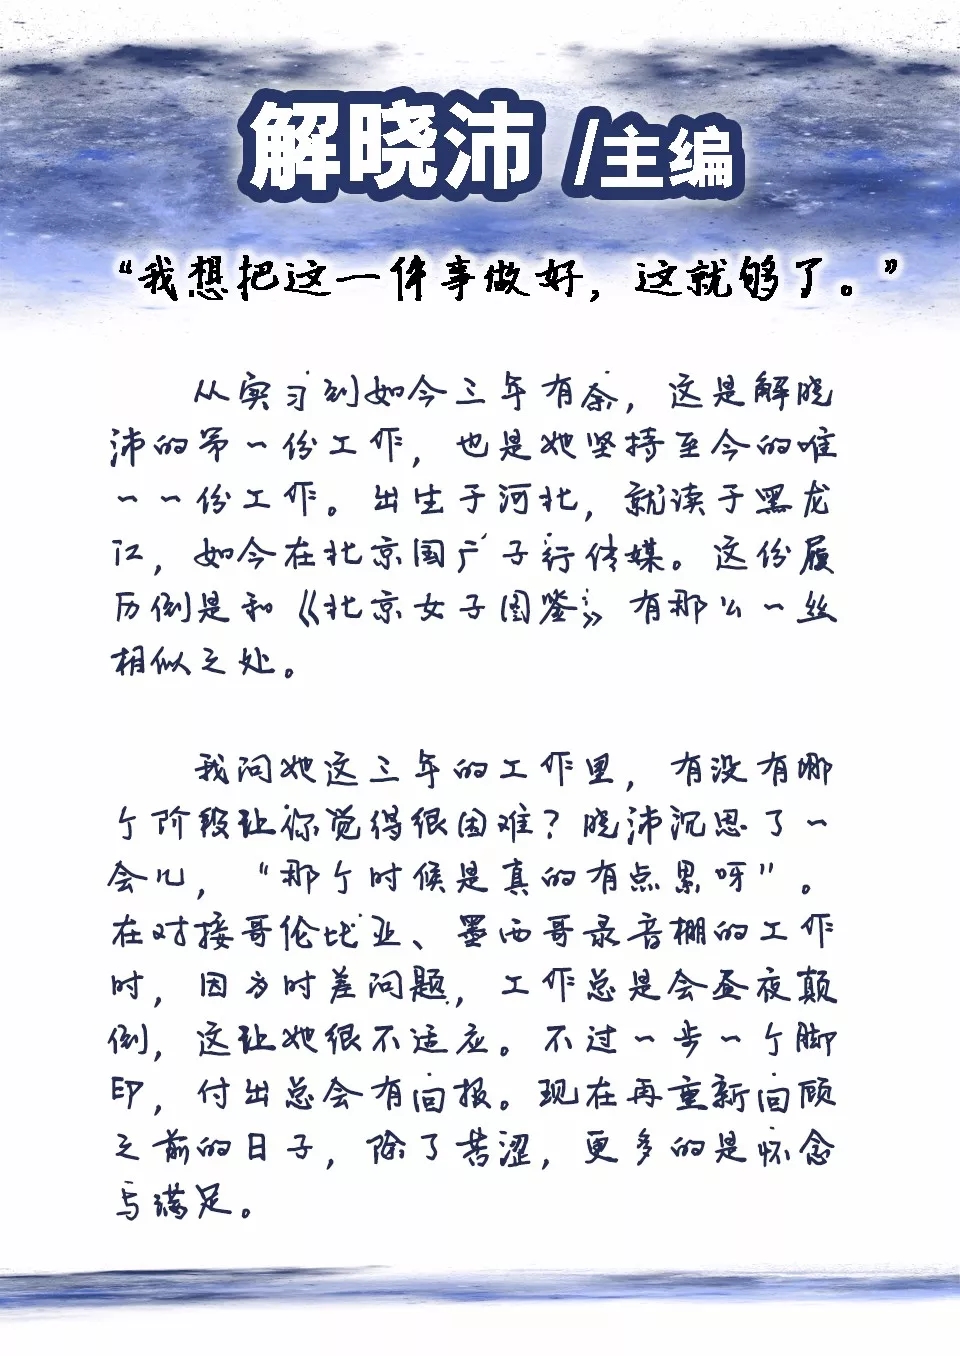 解晓沛 /主编
“我想把这一件事做好，这就够了。”
从实习到如今三年有余，这是解晓
沛的第一份工作，也是她坚持至今的唯
一一份工作。出生于河北，就读于黑龙
江，如今在北京国广子行传媒。这份履
历倒是和《北京女子图鉴》有那么一丝
相似之处。
我问她这三年的工作里，有没有哪
个阶段让你觉得很困难？晓沛沉思了一
会儿，“那个时候是真的有点累呀”。
在对接哥伦比亚、墨西哥录音棚的工作
时，因为时差问题，工作总是会昼夜颠
倒，这让她很不适应。不过一步一个脚
印，付出总会有回报。现在再重新回顾
之前的日子，除了苦涩，更多的是怀念
与满足。